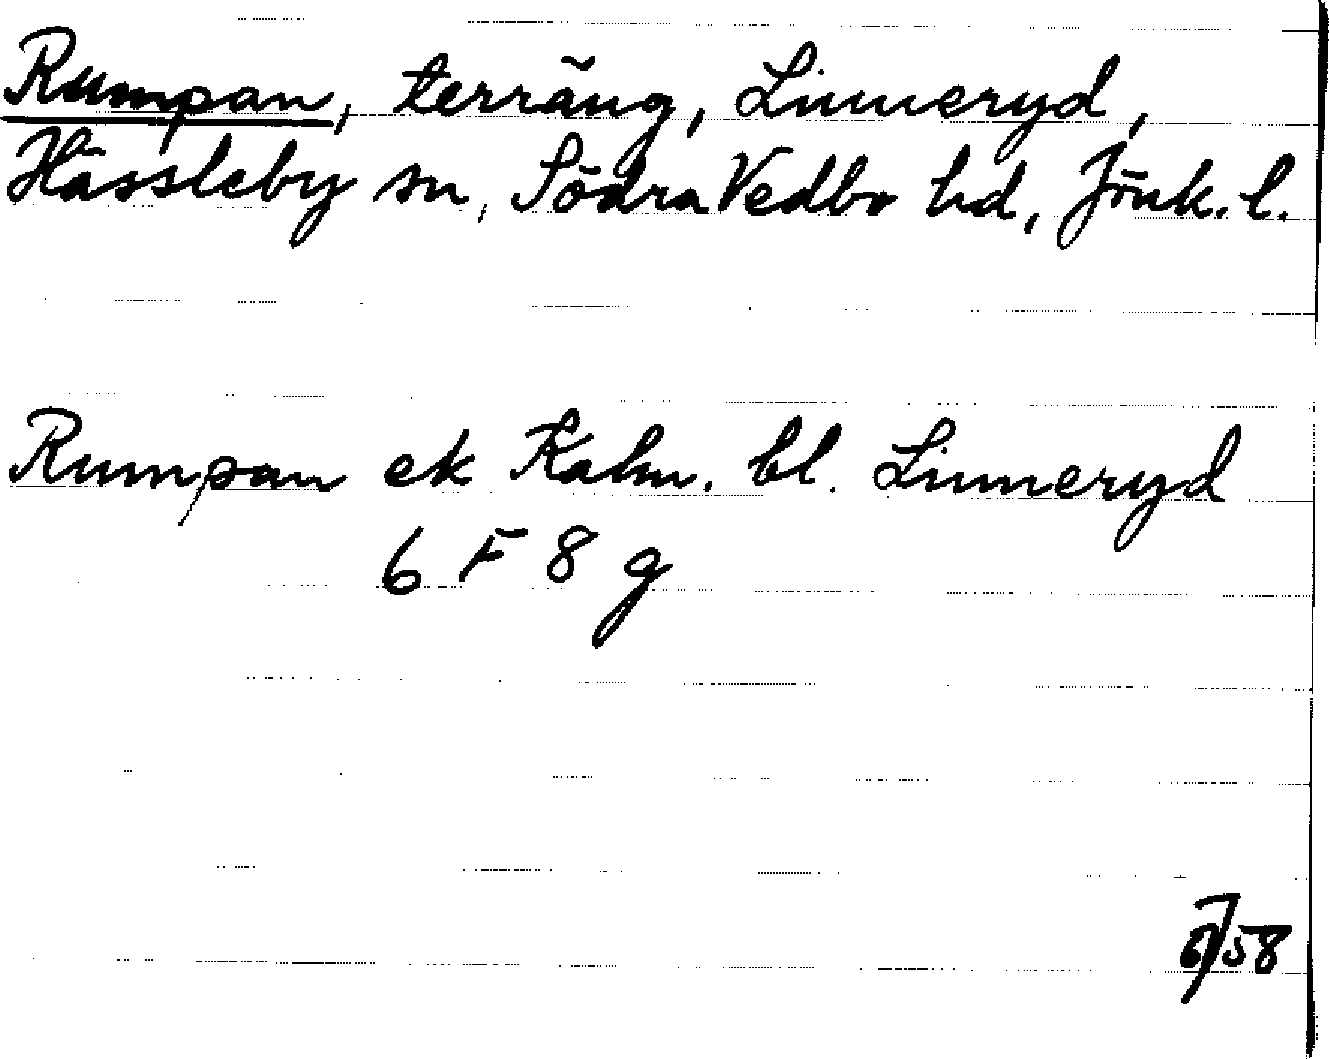 Rumpan, terräng, Linneryd,
Hässleby sn, Södra Vedbo hd, Jönk. l.
Rumpan ek Kalm. bl. Linneryd
6 F 8 g